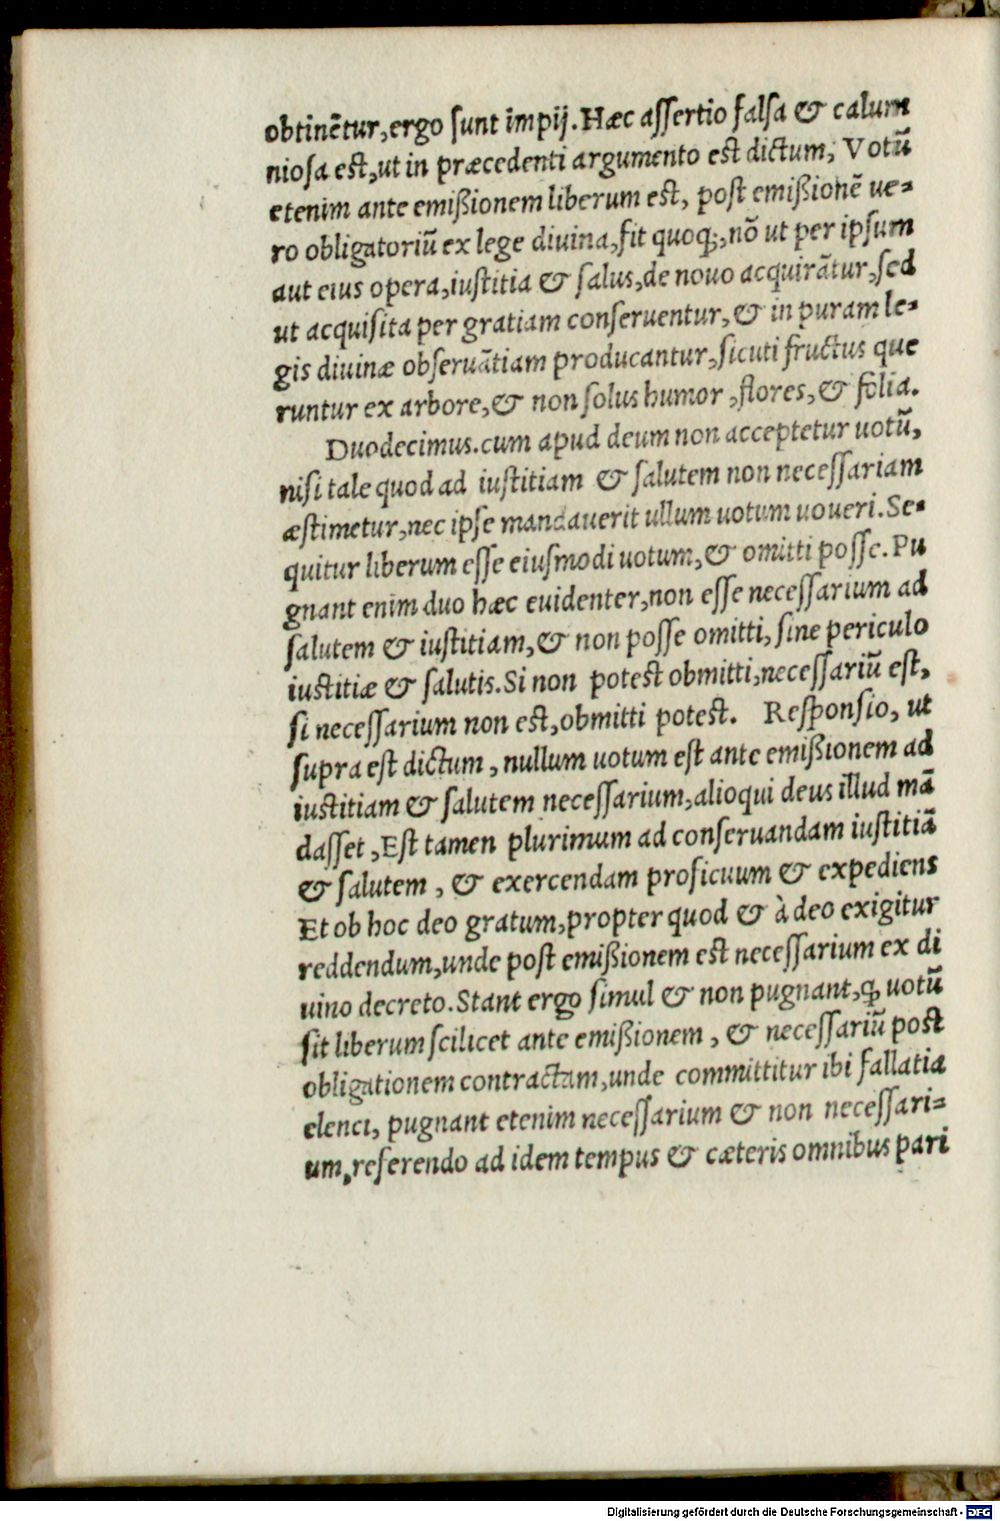 obtinẽtur,ergo ſunt impij. Hæc aſſertio falſa & calum
nioſa eſt,ut in præcedenti argumento eſt dictum, Votũ
etenim ante emißionem liberum eſt, poſt emißionẽ ue-
ro obligatoriũ ex lege diuina,fit quoq;,nõ ut per ipſum
aut eius opera,iuſtitia & ſalus,de nouo acquirãtur,ſed
ut acquiſita per gratiam conſeruentur,& in puram le-
gis diuinæ obſeruãtiam producantur,ſicuti fructus que
runtur ex arbore,& non ſolus humor ,flores,& folia.
Duodecimus.cum apud deum non acceptetur uotũ,
niſi tale quod ad iuſtitiam & ſalutem non neceſſariam
æſtimetur,nec ipſe mandauerit ullum uotum uoueri.Se-
quitur liberum eſſe eiuſmodi uotum,& omitti poſſe.Pu
gnant enim duo hæc euidenter,non eſſe neceſſarium ad
ſalutem & iuſtitiam,& non poſſe omitti, ſine periculo
iuſtitiæ & ſalutis.Si non poteſt obmitti,neceſſariũ eſt,
ſi neceſſarium non eſt,obmitti poteſt. Reſponſio, ut
ſupra eſt dictum , nullum uotum eſt ante emißionem ad
iuſtitiam & ſalutem neceſſarium,alioqui deus illud mã
daſſet ,Eſt tamen plurimum ad conſeruandam iuſtitiã
& ſalutem , & exercendam proficuum & expediens
Et ob hoc deo gratum,propter quod & à deo exigitur
reddendum,unde poſt emißionem eſt neceſſarium ex di
uino decreto.Stant ergo ſimul & non pugnant,ꝙ uotũ
ſit liberum ſcilicet ante emißionem , & neceſſariũ poſt
obligationem contractam,unde committitur ibi fallatia
elenci, pugnant etenim neceſſarium & non neceſſari-
um,referendo ad idem tempus & cæteris omnibus pari
Digitalisierung gefördert durch die Deutsche Forschungsgemeinschaft - DFG